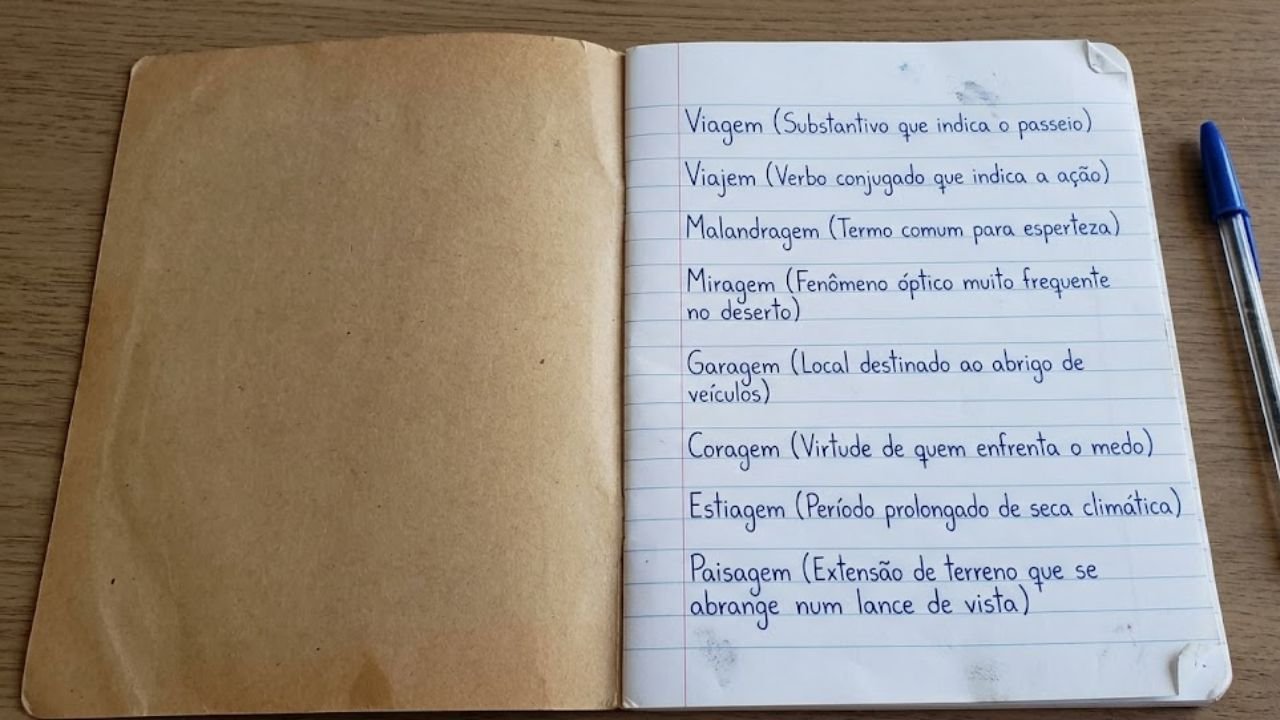 Viagem (Substantivo que indica o passeio)
Viajem (Verbo conjugado que indica a ação)
Malandragem (Termo comum para esperteza)
Miragem (Fenômeno óptico muito frequente
no deserto)
Garagem (Local destinado ao abrigo de
veículos)
Coragem (Virtude de quem enfrenta o medo)
Estiagem (Período prolongado de seca climática)
Paisagem (Extensão de terreno que se
abrange num lance de vista)